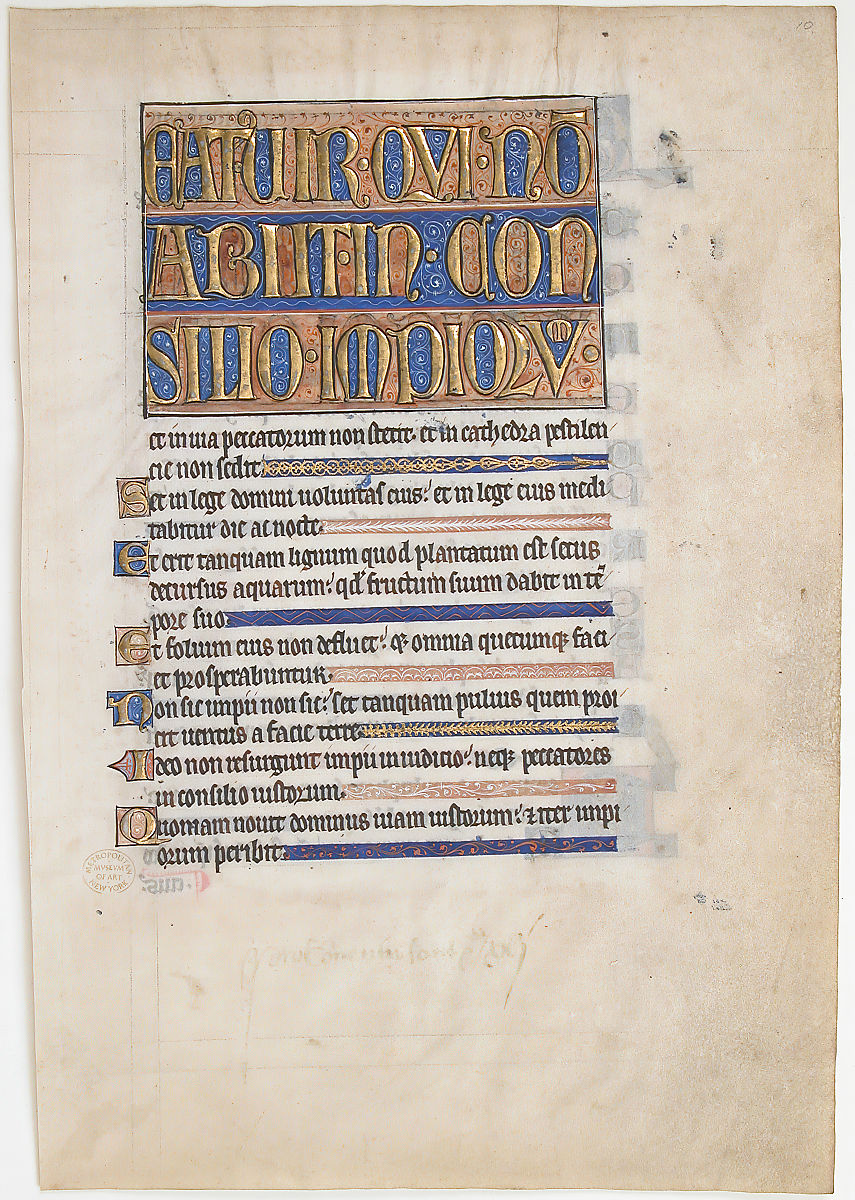 10
CATUR · QVI · NŌ
ABIIT · IN · CON
SILIO · IMPIORVM ·
et in uia peccatorum non stetit. et in cathedra pestilen
cie non sedit.
Set in lege domini uoluntas eius: et in lege eius medi
tabitur die ac nocte.
Et erit tanquam lignum quod plantatum est secus
decursus aquarum: qđ fructum suum dabit in tē
pore suo.
Et folium eius non defluet: et omnia quecumq; faci
et prosperabuntur.
Non sic impii non sic: set tanquam puluis quem proi
cit uentus a facie terre.
Ideo non resurgunt impii in iudicio: neq; peccatores
in consilio iustorum.
Quoniam nouit dominus uiam iustorum: ⁊ iter impi
orum peribit.
METROPOLITAN
MVSEVM
OF ART
NEW YORK